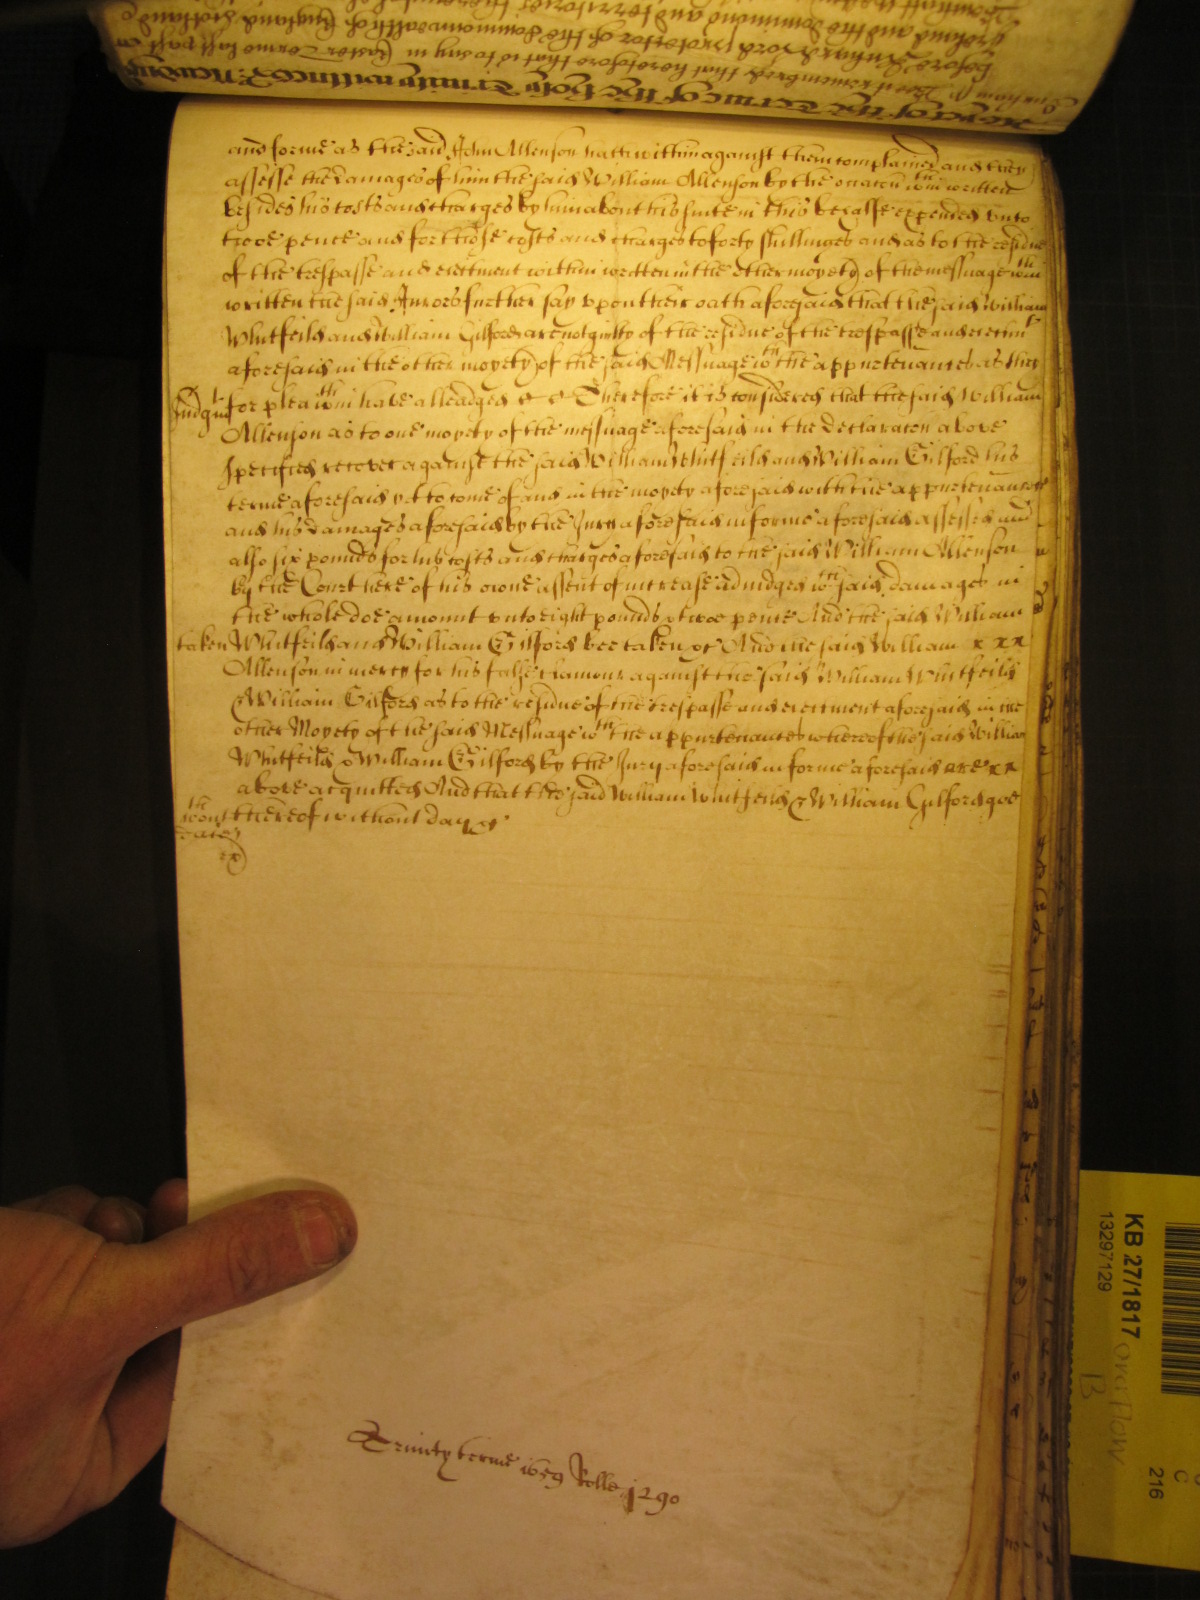 and forme as the said John Allenson hath within against them complained and they
assesse the damages of him the said William Allenson by the occacon wthin written
besides his costs and charges by him about his suite in this behalfe expended unto
twoe pence and for those costs and charges to forty shillinges and as to the residue
of the trespasse and eiectment within written in the other moyety of the messuage wthin
written the said Jurors further say upon their oath aforesaid that the said William
Whitfeild and William Gilford are not guilty of the residue of the trespasse and eiectmt
aforesaid in the other moyety of the said Messuage wth the appurtenances as they
Judgmt for plea wthin have alleadged &c &c Therefore it is considered that the said William
Allenson as to one moyety of the messuage aforesaid in the declaracon above
specified recover against the said William Whitfeild and William Gilford his
terme aforesaid yet to come of and in the moyety aforesaid with the appurtenances
and his damages aforesaid by the Jury aforesaid in forme aforesaid assessed and
also six pounds for his costs and charges aforesaid to the said William Allenson
by the Court here of his owne assent of increase adiudged wch said damages in
the whole doe amount unto eight pounds & twoe pence And the said William
taken Whitfeild and William Gilford bee taken &c And the said William x x x
Allenson in mercy for his false clamour against the said William Whitfeild
& William Gilford as to the residue of the trespasse and eiectment aforesaid in the
other Moyety of the said Messuage wth the appurtenances whereof the said William
Whitfeild & William Gilford by the Jury aforesaid in forme aforesaid are x x
above acquitted And that the said William Whitfeild & William Gilford goe
wthout thereof without day &c
daie
Trinity terme 1659 Rolle 1290
KB 27/1817
13297129
overflow
B
C
216